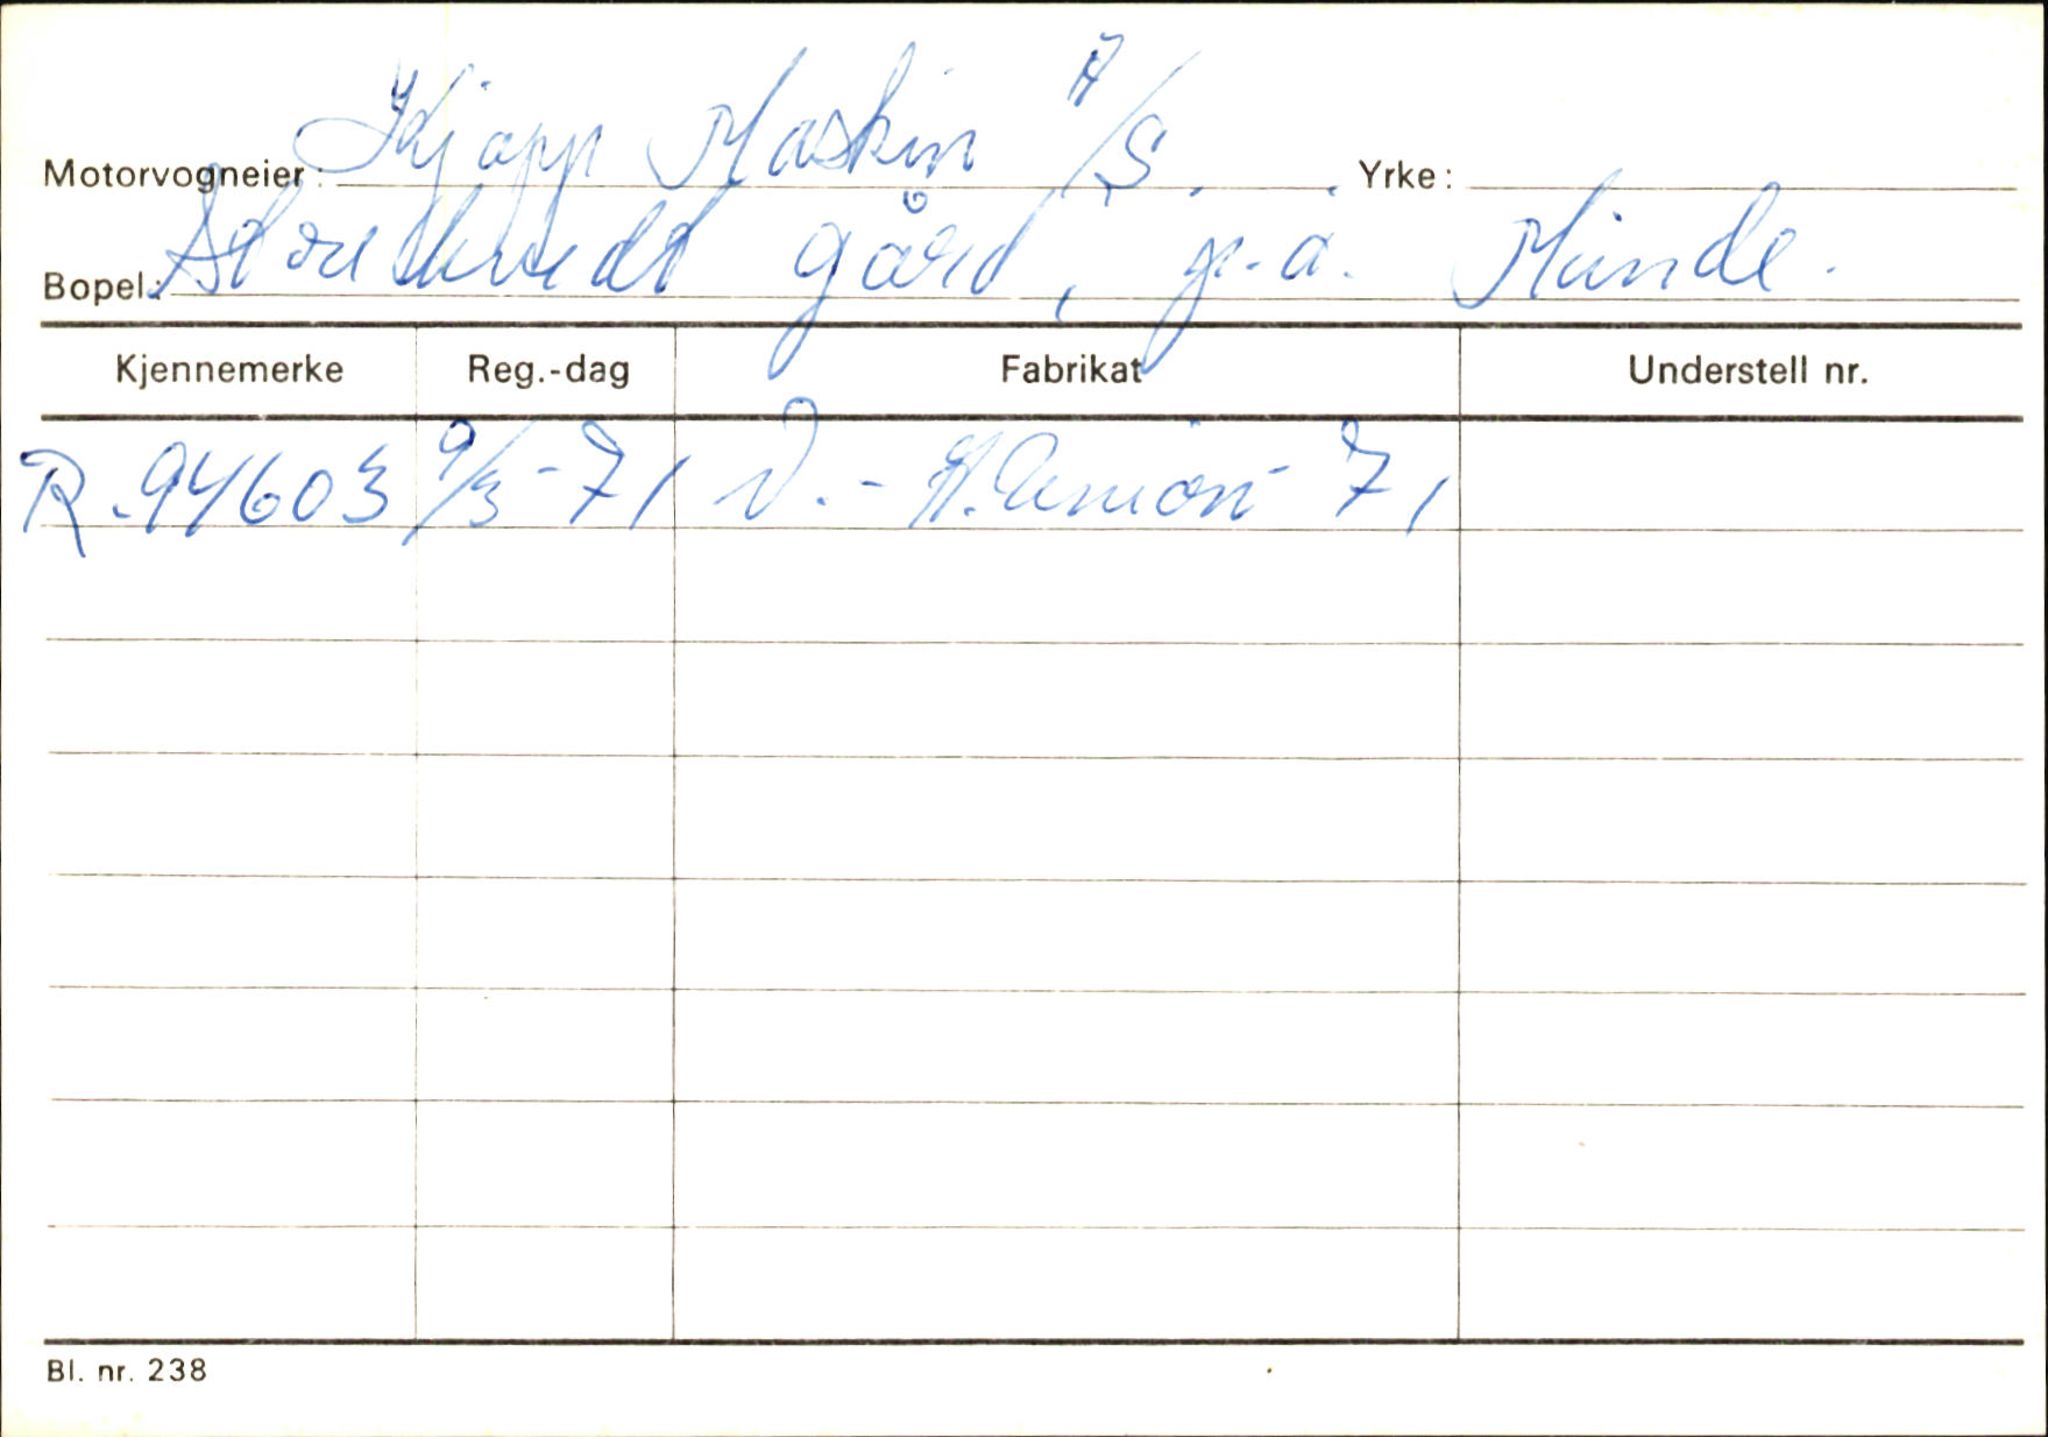 Motorvogneier: Kjapp Maskin A/S. Yrke:
Bopel: gård, p.a. Minde.
Kjennemerke Reg.-dag Fabrikat Understell nr.
R.94603 9/3-71 V.- 71
Bl. nr. 238